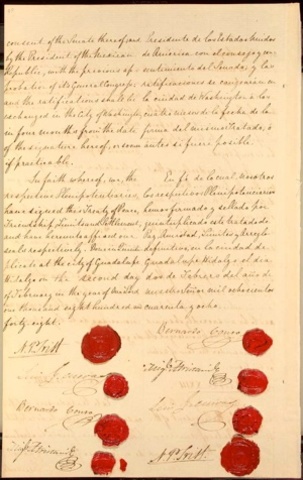 consent of the Senate thereof; and
by the President of the Mexican
Republic, with the previous ap-
probation of its General Congress;
and the ratifications shall be
exchanged in the City of Washington,
in four months from the date
of the signature hereof, or sooner
if practicable.
In faith whereof, we, the
respective Plenipotentiaries,
have signed this Treaty of Peace,
Friendship, Limits and Settlement,
and have hereunto affixed our
seals respectively. Done in Quintu-
plicate at the City of Guadalupe
Hidalgo on the second day
of February in the year of
one thousand eight hundred and
forty eight.
Presidente de los Estados Unidos
de America, con el consejo y con-
sentimiento del Senado; y las
ratificaciones se cangearán en
la ciudad de Washington a los
cuatro meses de la fecha de la
firma del mismo tratado, ó
antes si fuere posible.
En fé de lo cual, nosotros
los respectivos Plenipotenciarios
hemos firmado y sellado por
quintuplicado este tratado de
Paz, Amistad, Limites y Arreglo
definitivo, en la ciudad de
Guadalupe Hidalgo el dia
dos de Febrero del año de
mil ochocientos
cuarenta y ocho.
N. P. Trist
Luis G. Cuevas
Bernardo Couto
Migl. Atristain
Bernardo Couto
Migl. Atristain
Luis G. Cuevas
N. P. Trist